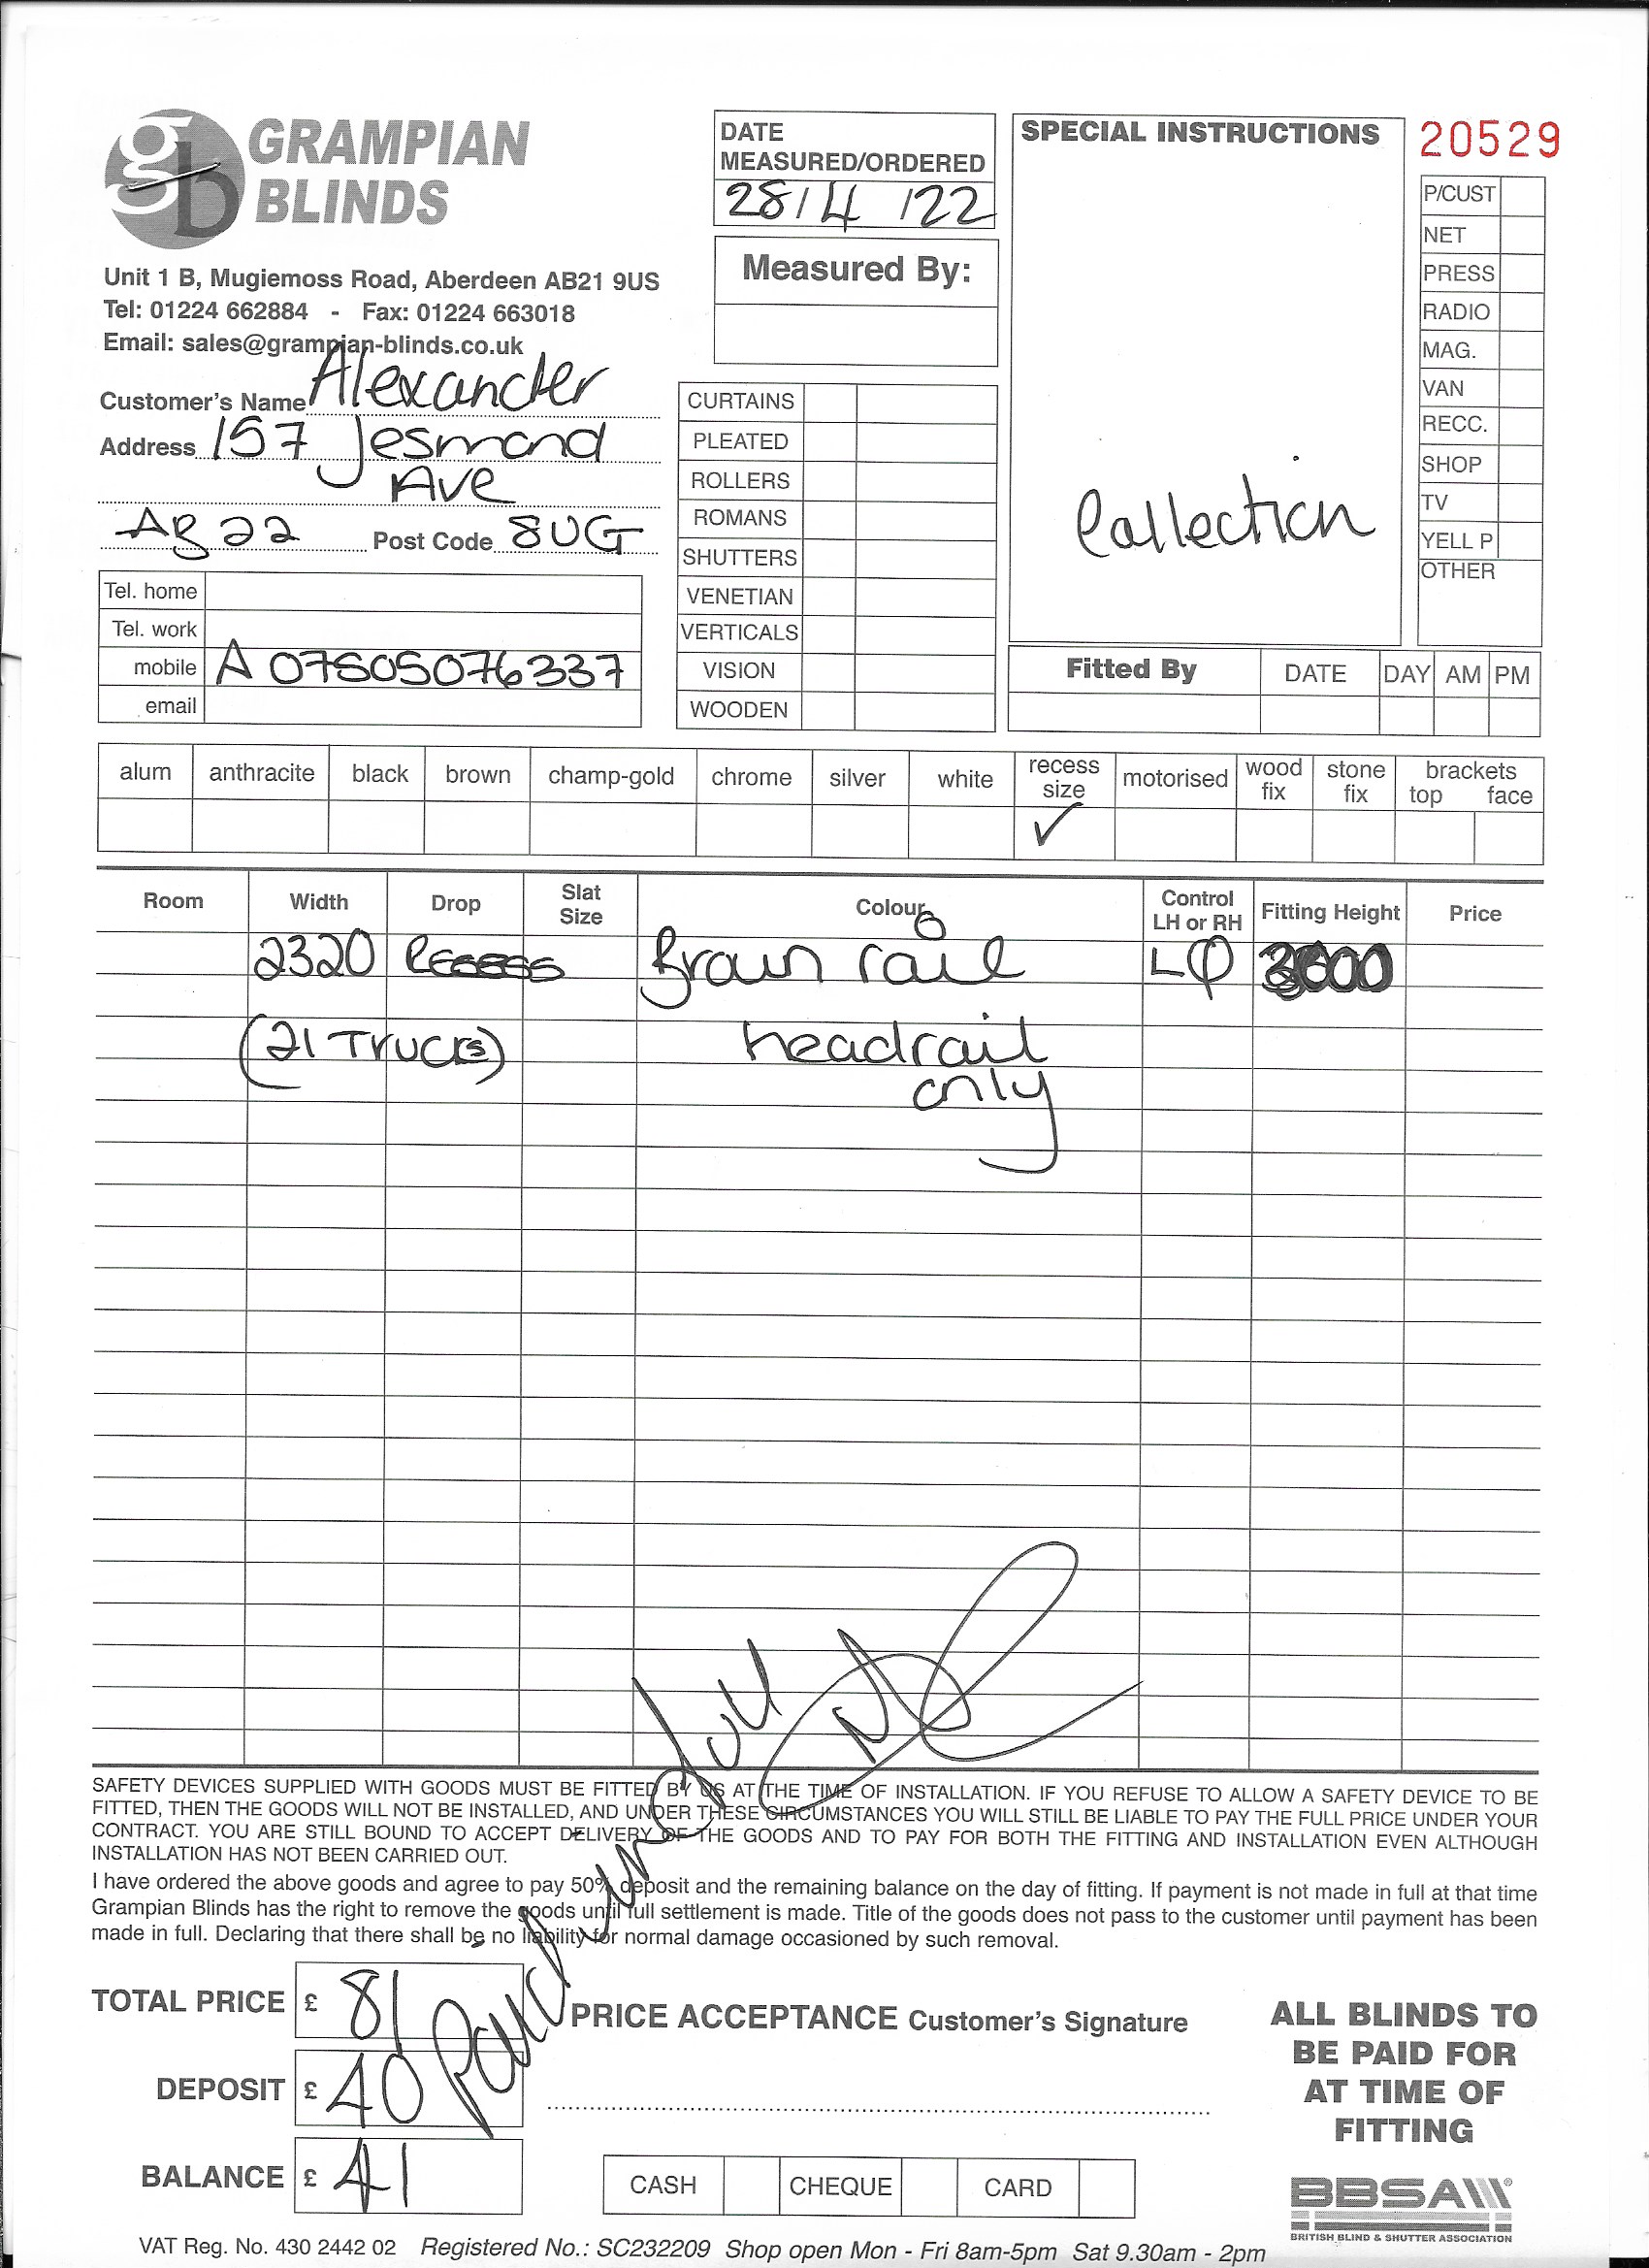 GRAMPIAN
BLINDS
Unit 1 B, Mugiemoss Road, Aberdeen AB21 9US
Tel: 01224 662884 - Fax: 01224 663018
Email: sales@grampian-blinds.co.uk
Customer's Name Alexander
Address 157 Jesmond
Ave
AB22 Post Code 8UG
Tel. home
Tel. work
mobile A 07505076337
email
DATE
MEASURED/ORDERED
28/4/22
Measured By:
CURTAINS
PLEATED
ROLLERS
ROMANS
SHUTTERS
VENETIAN
VERTICALS
VISION
WOODEN
SPECIAL INSTRUCTIONS
Collection
20529
P/CUST
NET
PRESS
RADIO
MAG.
VAN
RECC.
SHOP
TV
YELL P
OTHER
Fitted By DATE DAY AM PM
alum anthracite black brown champ-gold chrome silver white recess size motorised wood fix stone fix brackets top face
✓
Room Width Drop Slat Size Colour Control LH or RH Fitting Height Price
2320 Recess Brown rail
(21 Trucks) headrail
only
SAFETY DEVICES SUPPLIED WITH GOODS MUST BE FITTED BY US AT THE TIME OF INSTALLATION. IF YOU REFUSE TO ALLOW A SAFETY DEVICE TO BE
FITTED, THEN THE GOODS WILL NOT BE INSTALLED, AND UNDER THESE CIRCUMSTANCES YOU WILL STILL BE LIABLE TO PAY THE FULL PRICE UNDER YOUR
CONTRACT. YOU ARE STILL BOUND TO ACCEPT DELIVERY OF THE GOODS AND TO PAY FOR BOTH THE FITTING AND INSTALLATION EVEN ALTHOUGH
INSTALLATION HAS NOT BEEN CARRIED OUT.
I have ordered the above goods and agree to pay 50% deposit and the remaining balance on the day of fitting. If payment is not made in full at that time
Grampian Blinds has the right to remove the goods until full settlement is made. Title of the goods does not pass to the customer until payment has been
made in full. Declaring that there shall be no liability for normal damage occasioned by such removal.
Paid in full
TOTAL PRICE £ 81
DEPOSIT £ 40
BALANCE £ 41
PRICE ACCEPTANCE Customer's Signature
CASH CHEQUE CARD
ALL BLINDS TO
BE PAID FOR
AT TIME OF
FITTING
BBSA
BRITISH BLIND & SHUTTER ASSOCIATION
VAT Reg. No. 430 2442 02 Registered No.: SC232209 Shop open Mon - Fri 8am-5pm Sat 9.30am - 2pm